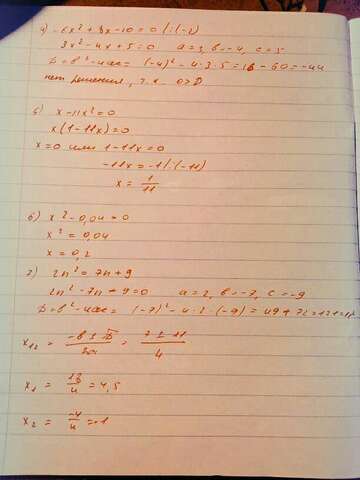 а) -6x² + 8x - 10 = 0 | :(-2)
3x² - 4x + 5 = 0   a = 3, b = -4, c = 5
D = b² - 4ac = (-4)² - 4·3·5 = 16 - 60 = -44
нет решения, т.к. 0>D
б) x - 11x² = 0
x(1 - 11x) = 0
x = 0 или 1 - 11x = 0
-11x = -1 | :(-11)
x = 1/11
в) x² - 0,04 = 0
x² = 0,04
x = 0,2
г) 2x² = 7x + 9
2x² - 7x + 9 = 0   a = 2, b = -7, c = -9
D = b² - 4ac = (-7)² - 4·2·(-9) = 49 + 72 = 121 = 11²
x₁₂ = -b ± √D / 2a = 7 ± 11 / 4
x₁ = 18/4 = 4,5
x₂ = -4/4 = -1